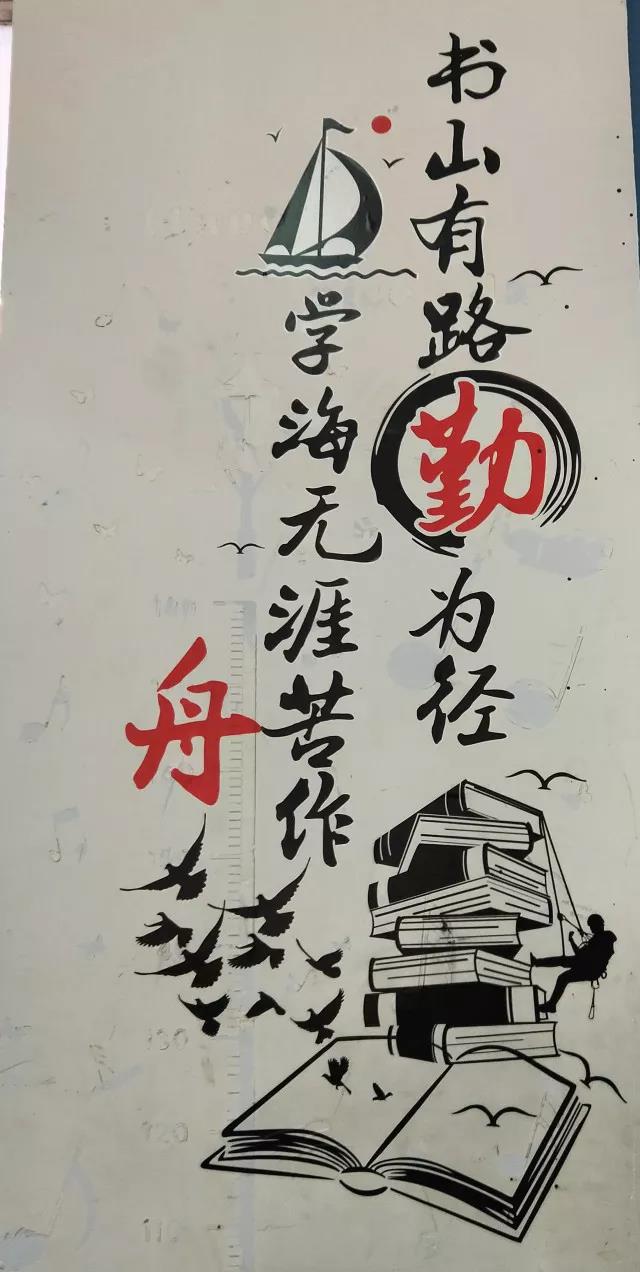 书山有路勤为径
学海无涯苦作舟
130
120
110